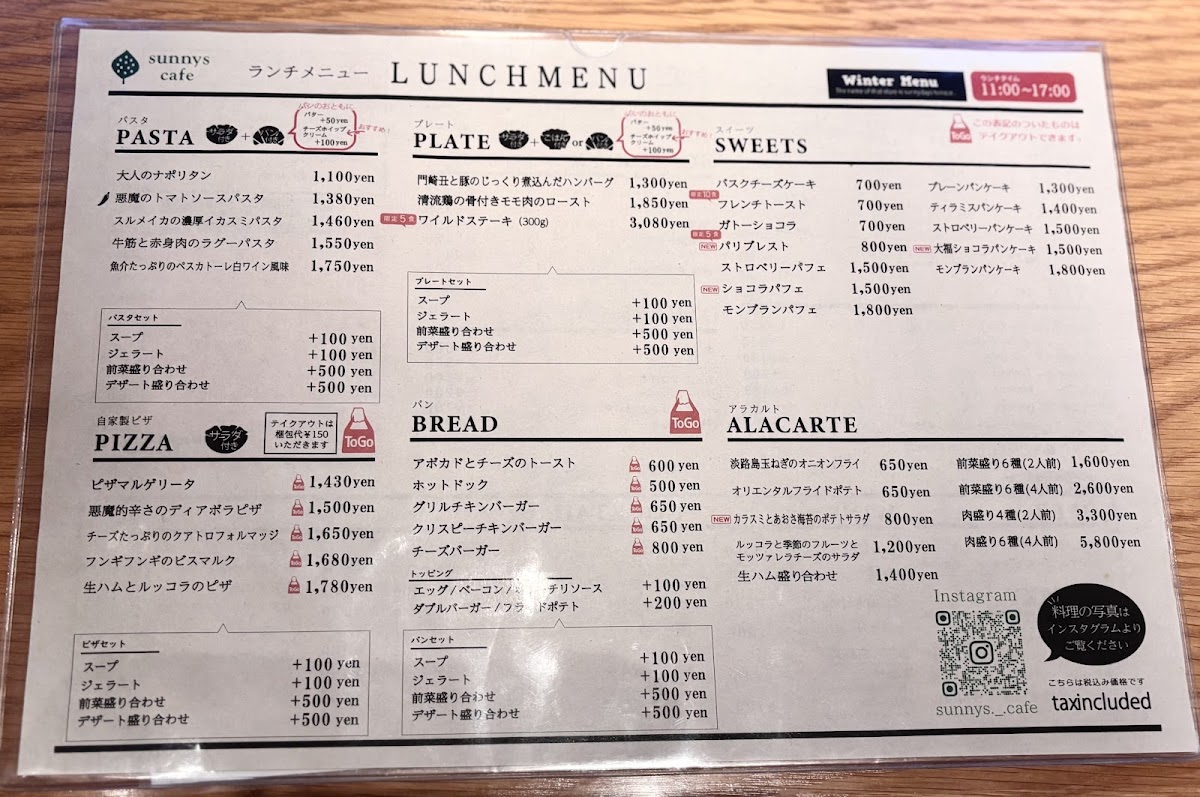 sunnys
cafe
ランチメニュー LUNCHMENU
Winter Menu
ランチタイム
11:00~17:00
パスタ
PASTA
サラダ付き + パン付き
パンのおともに
バター
+50yen
チーズホイップ
クリーム
+100yen
おすすめ!
大人のナポリタン 1,100yen
悪魔のトマトソースパスタ 1,380yen
スルメイカの濃厚イカスミパスタ 1,460yen
牛筋と赤身肉のラグーパスタ 1,550yen
魚介たっぷりのペスカトーレ白ワイン風味 1,750yen
パスタセット
スープ +100 yen
ジェラート +100 yen
前菜盛り合わせ +500 yen
デザート盛り合わせ +500 yen
プレート
PLATE
サラダ付き + ごはん or
パンのおともに
バター
+50yen
チーズホイップ
クリーム
+100yen
おすすめ!
門崎丑と豚のじっくり煮込んだハンバーグ 1,300yen
清流鶏の骨付きモモ肉のロースト 1,850yen
限定5食 ワイルドステーキ (300g) 3,080yen
プレートセット
スープ +100 yen
ジェラート +100 yen
前菜盛り合わせ +500 yen
デザート盛り合わせ +500 yen
スイーツ
SWEETS
ToGo
この表記のついたものは
テイクアウトできます。
バスクチーズケーキ 700yen
限定10食
フレンチトースト 700yen
ガトーショコラ 700yen
限定5食
NEW パリブレスト 800yen
ストロベリーパフェ 1,500yen
NEW ショコラパフェ 1,500yen
モンブランパフェ 1,800yen
プレーンパンケーキ 1,300yen
ティラミスパンケーキ 1,400yen
ストロベリーパンケーキ 1,500yen
NEW 大福ショコラパンケーキ 1,500yen
モンブランパンケーキ 1,800yen
自家製ピザ
PIZZA
サラダ付き
テイクアウトは
梱包代¥150
いただきます
ToGo
ピザマルゲリータ ToGo 1,430yen
悪魔的辛さのディアボラピザ ToGo 1,500yen
チーズたっぷりのクアトロフォルマッジ ToGo 1,650yen
フンギフンギのビスマルク ToGo 1,680yen
生ハムとルッコラのピザ ToGo 1,780yen
ピザセット
スープ +100 yen
ジェラート +100 yen
前菜盛り合わせ +500 yen
デザート盛り合わせ +500 yen
パン
BREAD
ToGo
アボカドとチーズのトースト ToGo 600 yen
ホットドック ToGo 500 yen
グリルチキンバーガー ToGo 650 yen
クリスピーチキンバーガー ToGo 650 yen
チーズバーガー ToGo 800 yen
トッピング
エッグ/ベーコン/ チリソース +100 yen
ダブルバーガー/フライドポテト +200 yen
パンセット
スープ +100 yen
ジェラート +100 yen
前菜盛り合わせ +500 yen
デザート盛り合わせ +500 yen
アラカルト
ALACARTE
淡路島玉ねぎのオニオンフライ 650yen
オリエンタルフライドポテト 650yen
NEW カラスミとあおさ海苔のポテトサラダ 800yen
ルッコラと季節のフルーツと
モッツァレラチーズのサラダ 1,200yen
生ハム盛り合わせ 1,400yen
前菜盛り6種(2人前) 1,600yen
前菜盛り6種(4人前) 2,600yen
肉盛り4種(2人前) 3,300yen
肉盛り6種(4人前) 5,800yen
Instagram
sunnys._.cafe
料理の写真は
インスタグラムより
ご覧ください
こちらは税込み価格です
taxincluded